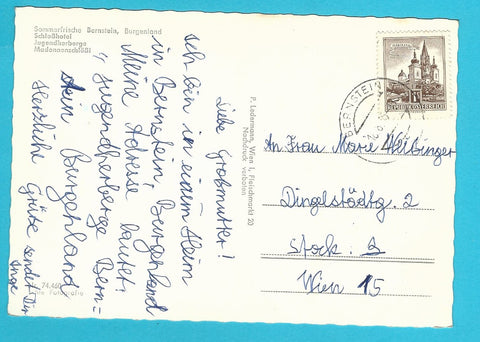 Sommerfrische Bernstein, Burgenland
Schloßhotel
Jugendherberge
Madonnenschlößl
Liebe Großmutter!
Ich bin in einem Heim
in Bernstein, Burgenland
Meine Adresse lautet:
"Jugendherberge Bern=
stein Burgenland
Herzliche Grüße sendet Dir
Inge
74.460
P. Ledermann, Wien I, Fleischmarkt 20
Nachdruck verboten
BERNSTEIN
REPUBLIK ÖSTERREICH
An Frau Marie
Dingelstädtg. 2
Stock
Wien 15